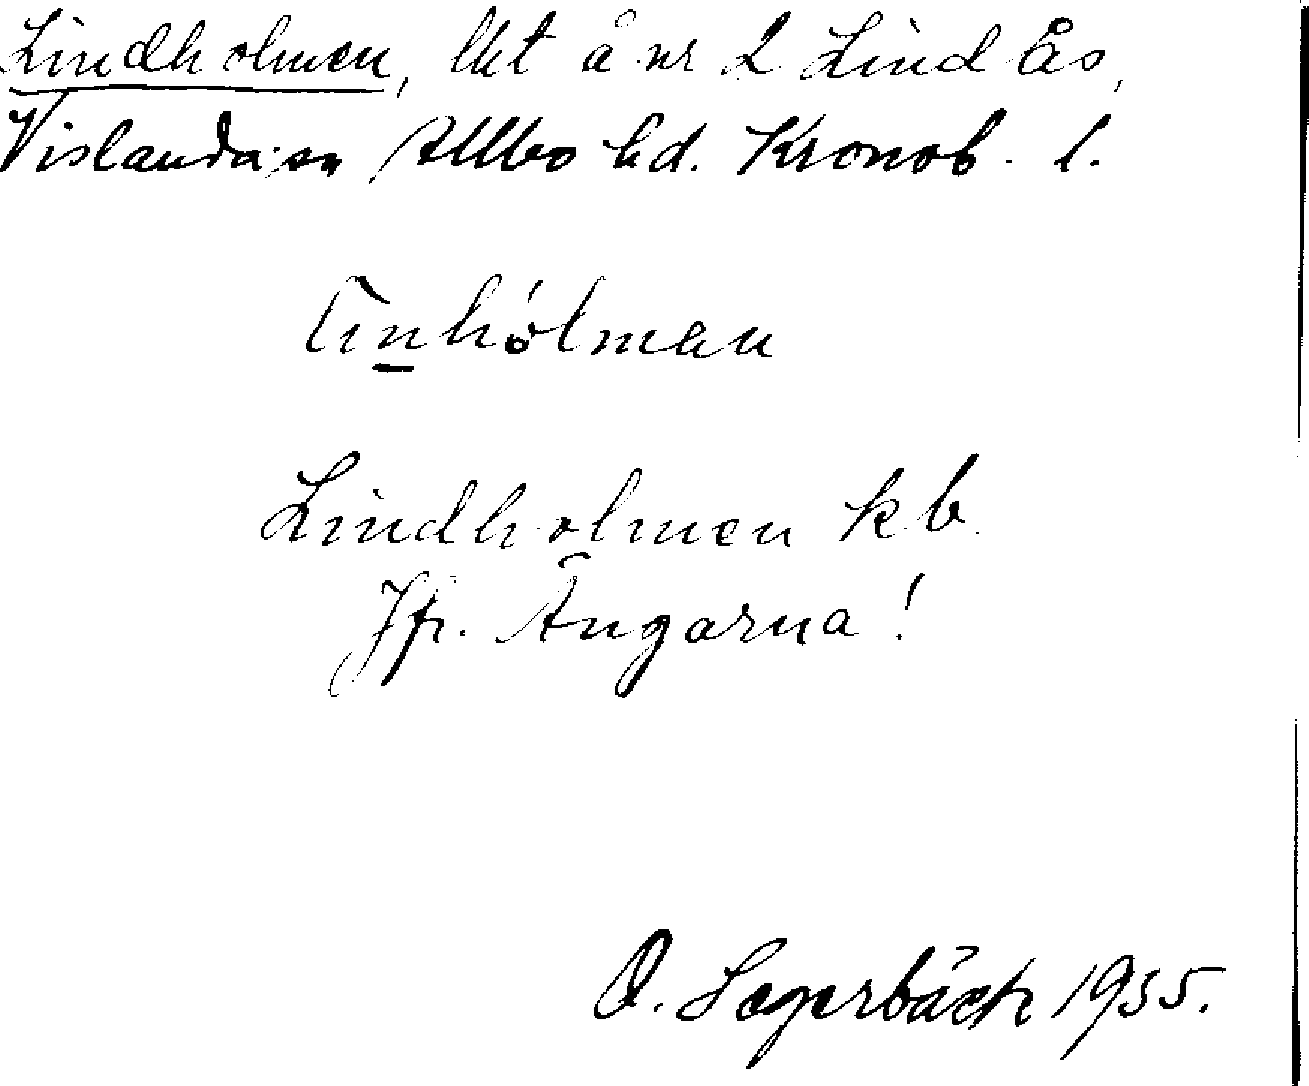 Lindholmen, lht å nr 2 Lindås,
Vislanda sn Allbo hd. Kronob. l.
linhólman
Lindholmen kb
Jfr. Ängarna!
O. Segerbäck 1935.